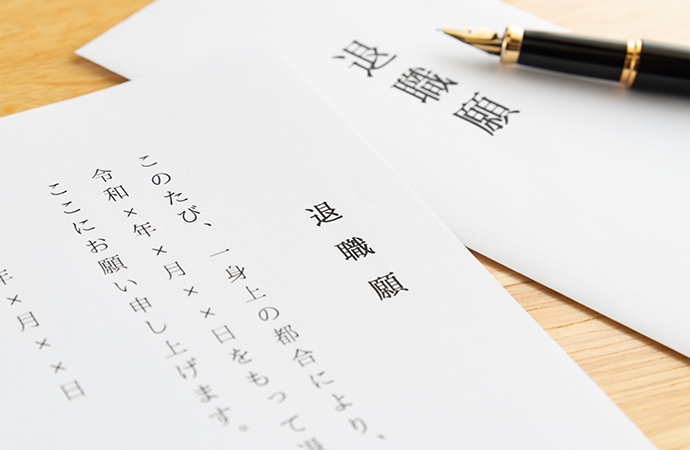 退職願
退職願
このたび、一身上の都合により、
令和×年×月××日をもって退
ここにお願い申し上げます。
年×月××日